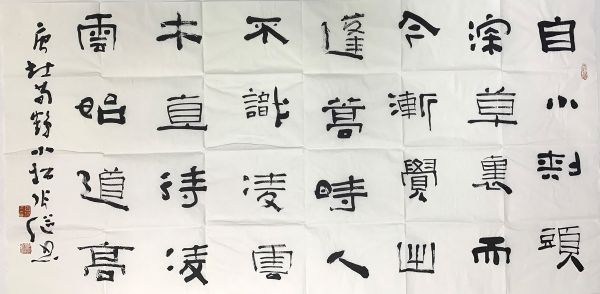 自小刺頭
深草裏而
今漸覺出
蓬蒿時人
不識凌雲
木直待凌
雲始道高
唐杜荀鶴小松